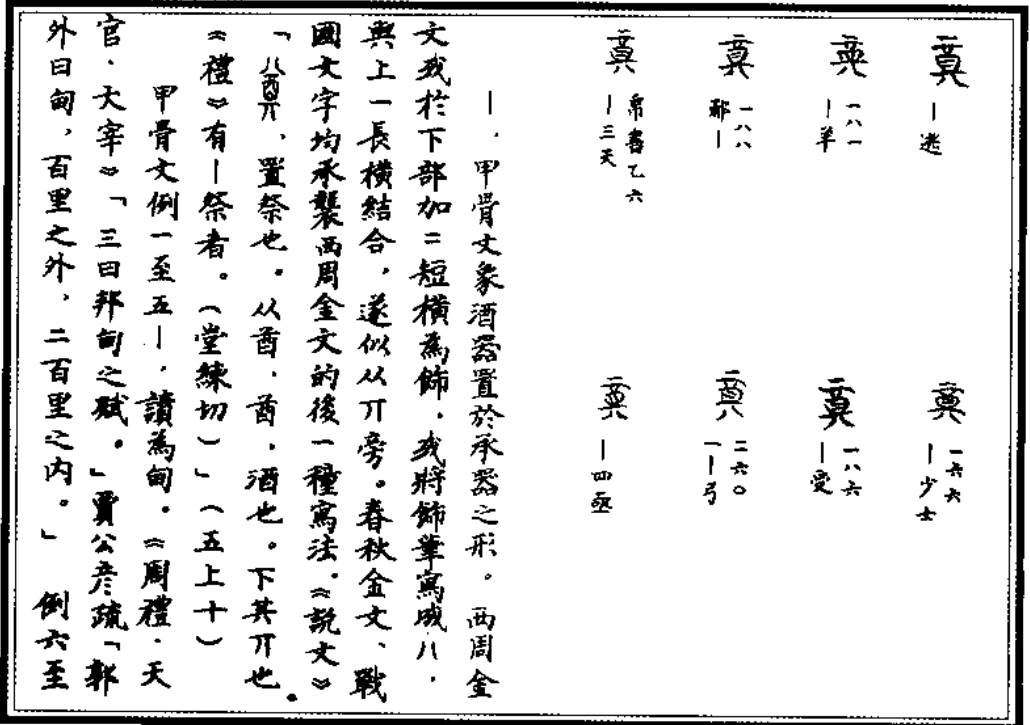 —逃
一六六
—少士
一八一
—羊
一八六
—受
一八八
鄢—
二六〇
一—弓
帛書乙六
—三天
—四亟
—，甲骨文象酒器置於承器之形。西周金
文或於下部加二短橫為飾，或將飾筆寫成八，
與上一長橫結合，遂似从丌旁。春秋金文、戰
國文字均承襲西周金文的後一種寫法。《說文》
「，置祭也。从酋，酋，酒也。下其丌也。
《禮》有—祭者。（堂練切）」（五上十）
甲骨文例一至五—，讀為甸。《周禮·天
官·大宰》「三曰邦甸之賦。」賈公彦疏「郭
外曰甸，百里之外，二百里之內。」 例六至